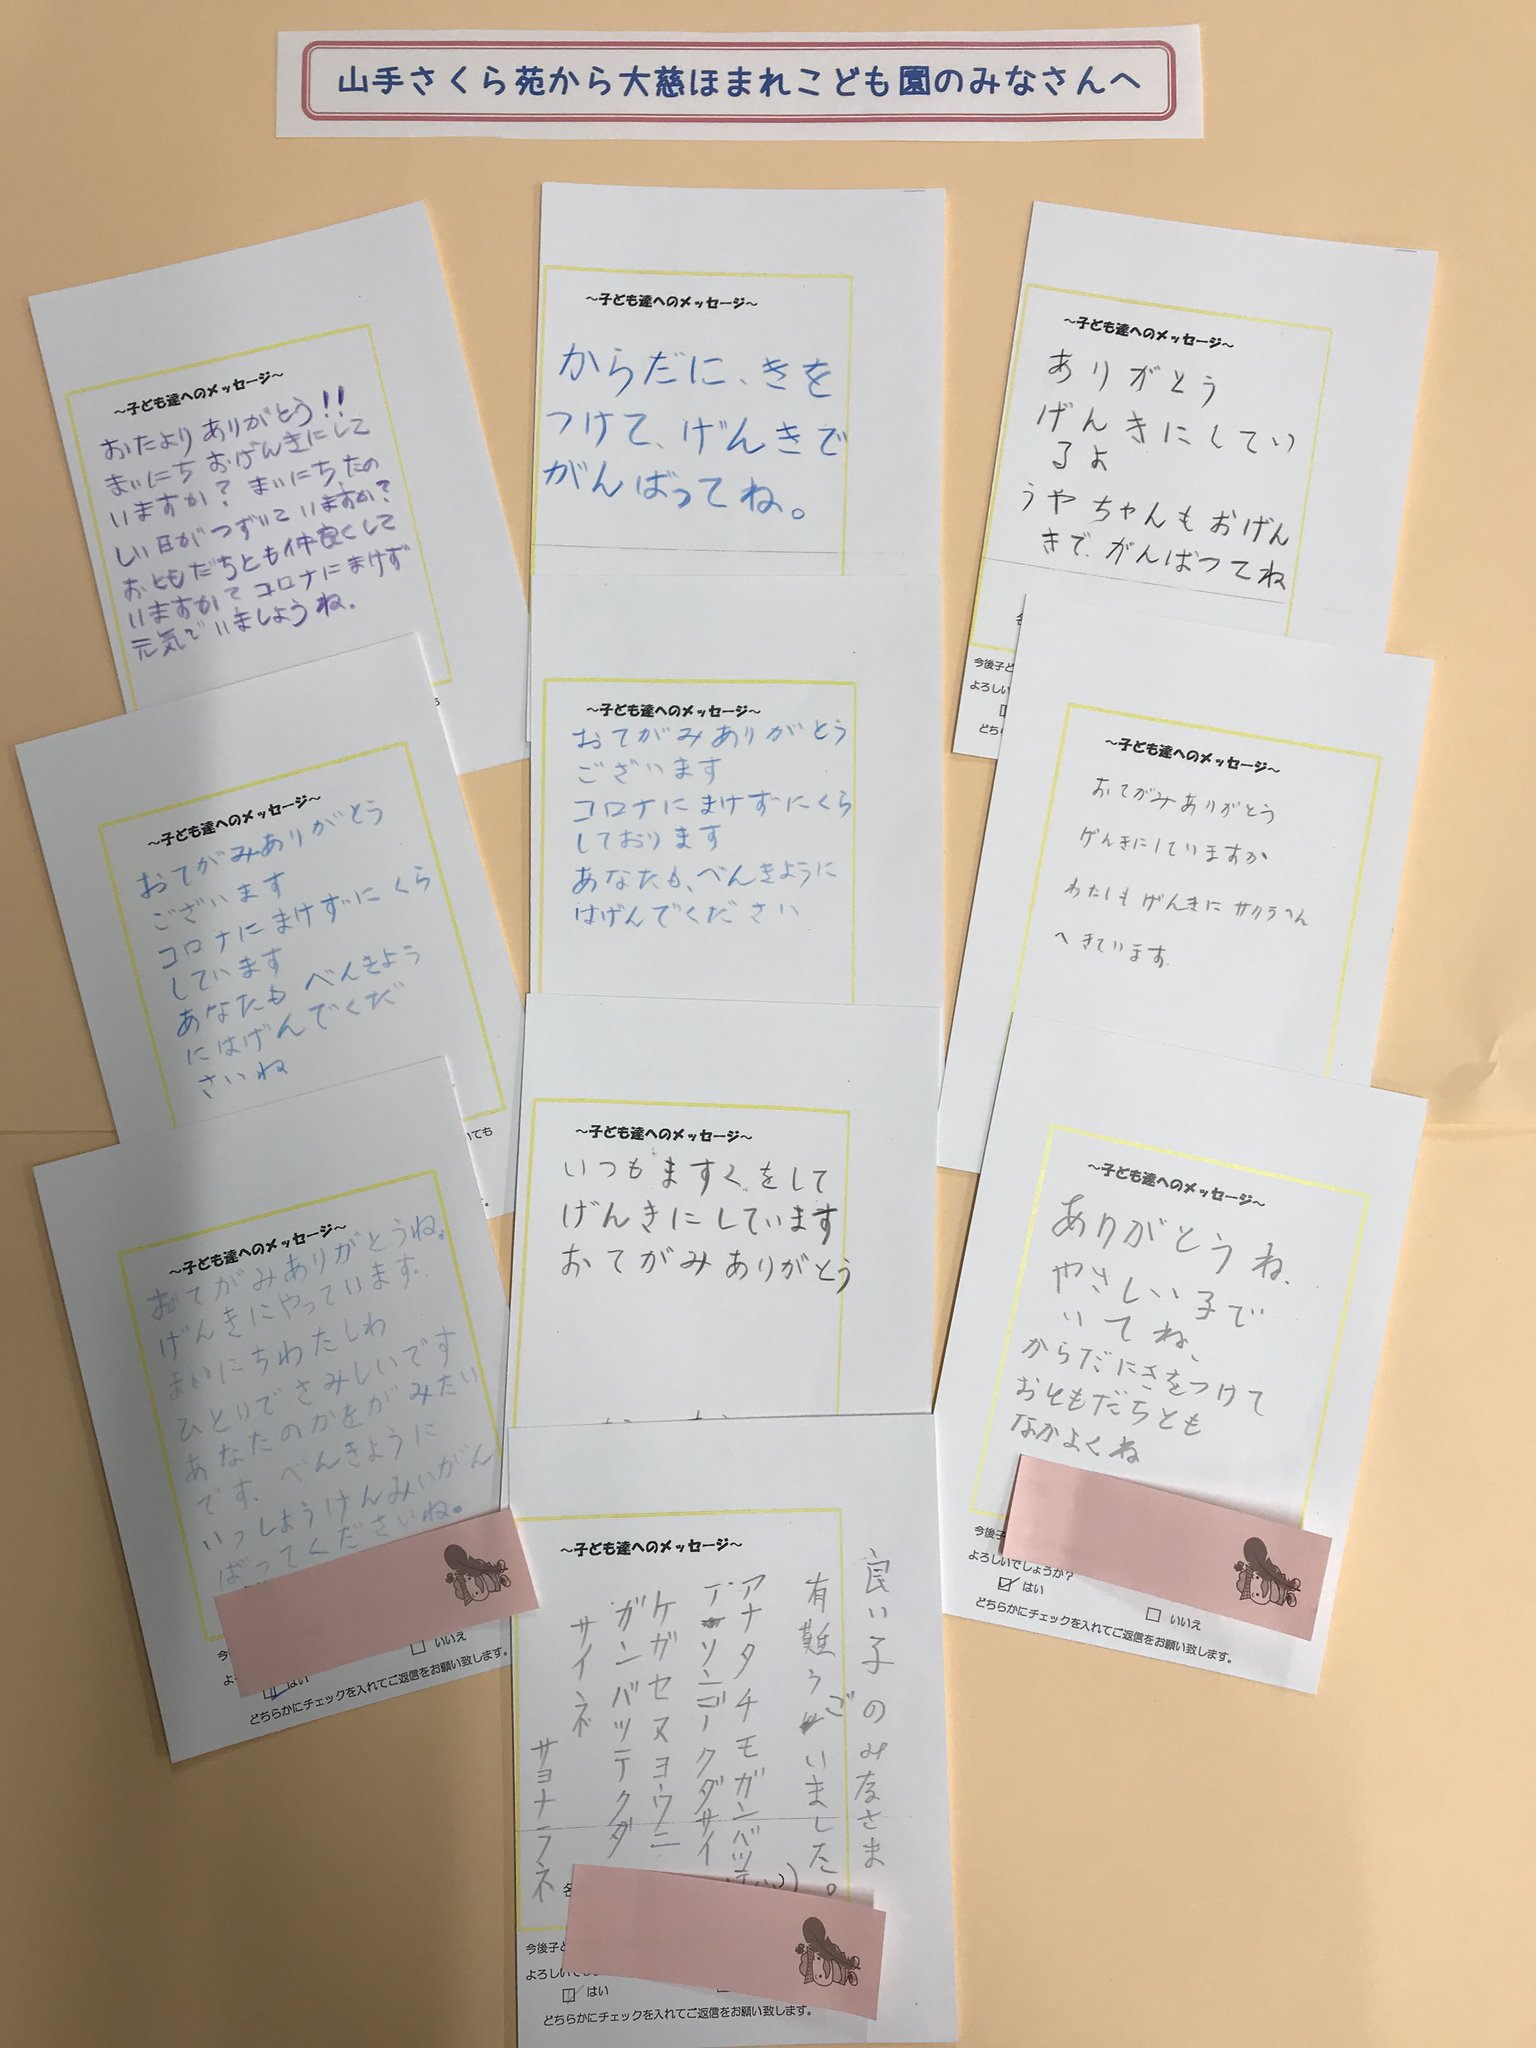 山手さくら苑から大慈ほまれこども園のみなさんへ
～子ども達へのメッセージ～
おたより ありがとう!!
まいにち おげんきにして
いますか? まいにち,たの
しい日がつずいていますか?
おともだちとも仲良くして
いますか? コロナにまけず
元気でいましょうね.
～子ども達へのメッセージ～
からだに、きを
つけて、げんきで
がんばってね。
～子ども達へのメッセージ～
ありがとう
げんきにしてい
るよ
うやちゃんもおげん
きで、がんばつてね
今後子ど
よろしい
どち
～子ども達へのメッセージ～
おてがみありがとう
ございます
コロナにまけずにくら
しています
あなたも べんきょう
にはげんでくだ
さいね
いても
～子ども達へのメッセージ～
おてがみありがとう
ございます
コロナにまけずにくら
しております
あなたも、べんきように
はげんでください
～子ども達へのメッセージ～
おてがみありがとう
げんきにしていますか
わたしも げんきに サクラへん
へ きています.
～子ども達へのメッセージ～
おてがみありがとうね。
げんきにやっています.
まいにちわたしわ
ひとりでさみしいです
あなたのかをがみたい
です. べんきように
いっしようけんみいがん
ばってくださいね。
はい
いいえ
どちらかにチェックを入れてご返信をお願い致します。
～子ども達へのメッセージ～
いつもますくをして
げんきにしています
おてがみありがとう
～子ども達へのメッセージ～
ありがとうね、
やさしい子で
いてね、
からだにきをつけて
おともだちとも
なかよくね
今後子
よろしいでしょうか?
はい
いいえ
どちらかにチェックを入れてご返信をお願い致します。
～子ども達へのメッセージ～
良い子のみなさま
有難うございました。
アナタチモガンバッテ
ソンデークダサイ
ケガセヌヨウニ
ガンバッテクダ
サイネ
サヨナラネ
各
今後子と
よろしいで
はい
どちらかにチェックを入れてご返信をお願い致します。